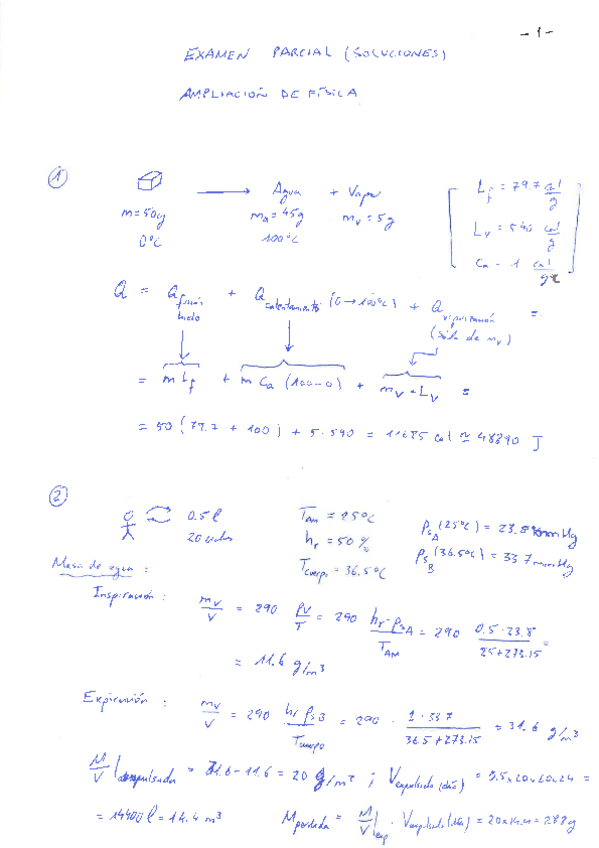 - 1 -
EXAMEN PARCIAL (SOLUCIONES)
AMPLIACIÓN DE FÍSICA
①
Agua + Vapor
m = 50g mₐ = 45g mᵥ = 5g
0°C 100°C
L_f = 79.7 cal/g
Lᵥ = 540 cal/g
Cₐ = 1 cal/g°C
Q = Q fusión hielo + Q calentamiento (0→100°C) + Q vaporización (sólo de mᵥ) =
= m L_f + m Cₐ (100-0) + mᵥ · Lᵥ =
= 50 (79.7 + 100) + 5 · 540 = 11685 cal ≃ 48890 J
②
0.5 l
20 ciclos
T_AM = 25°C
h_r = 50 %
T_cuerpo = 36.5°C
P_SA (25°C) = 23.8 mmHg
P_SB (36.5°C) = 33.7 mmHg
Masa de agua :
Inspiración : mᵥ/V = 290 Pᵥ/T = 290 h_r · P_SA / T_AM = 290 0.5 · 23.8 / 25+273.15 =
= 11.6 g/m³
Expiración : mᵥ/V = 290 h_r P_SB / T_cuerpo = 290 · 1 · 33.7 / 36.5+273.15 = 31.6 g/m³
M/V | expulsada = 31.6 - 11.6 = 20 g/m³ ; V expulsado (día) = 0.5 x 20 x 60 x 24 =
= 14400 l = 14.4 m³ M perdida = M/V | exp · V expulsado (día) = 20 x 14.4 = 288 g